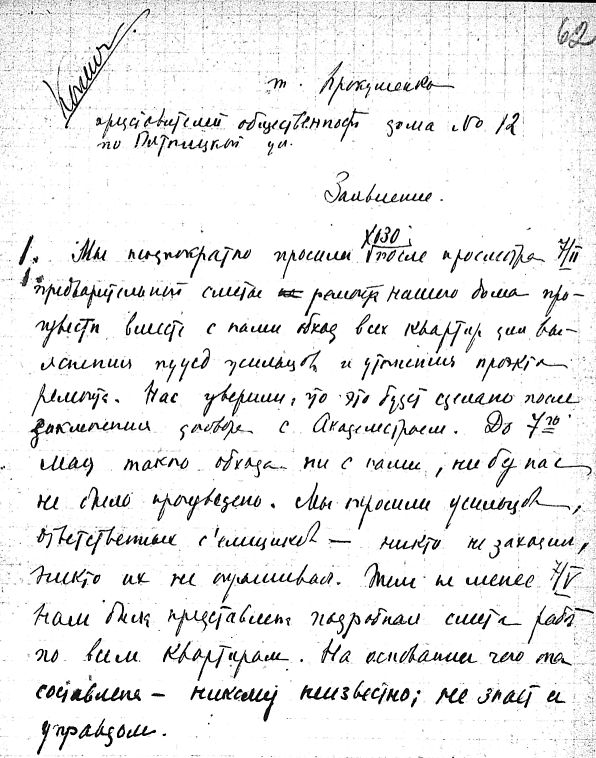 62
Копия.
т. Прокуменко
представителей общественности дома № 12
по Пятницкой ул.
Заявление.
1. Мы неоднократно просили после просмотра 7/II
предварительной сметы ремонта нашего дома про-
извести вместе с нами обход всех квартир для вы-
яснения нужд жильцов и уточнения проекта
ремонта. Нас уверили, что это будет сделано после
заключения договора с Академстроем. До 7го
мая такого обхода ни с нами, ни без нас
не было произведено. Мы опросили жильцов,
ответственных с'емщиков — никто не заходил,
никто их не опрашивал. Тем не менее 7/V
нам была представлена подробная смета работ
по всем квартирам. На основании чего она
составлена — никому неизвестно; не знает и
управдом.